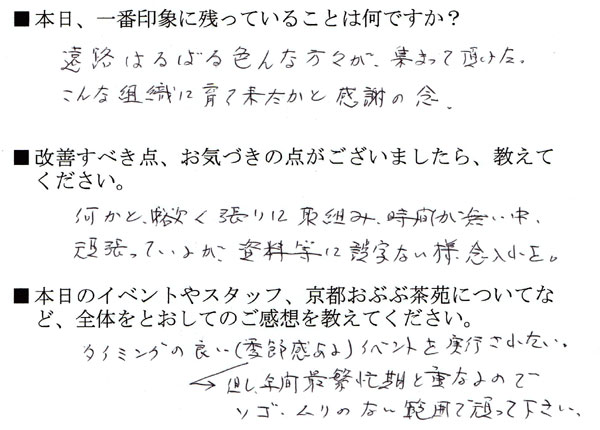 ■本日、一番印象に残っていることは何ですか？
遠路はるばる色んな方々が、集まって頂けた。
こんな組織に育て来たかと感謝の念、
■改善すべき点、お気づきの点がございましたら、教えて
ください。
何かと、欲張りに取組み、時間が無い中、
頑張っているが、資料等に誤字ない様念入りを。
■本日のイベントやスタッフ、京都おぶぶ茶苑についてな
ど、全体をとおしてのご感想を教えてください。
タイミングの良い(季節感ある)イベントを実行されたい。
但し、年間最繁忙期と重なるので
ソゴ、ムリのない範囲で頑って下さい、